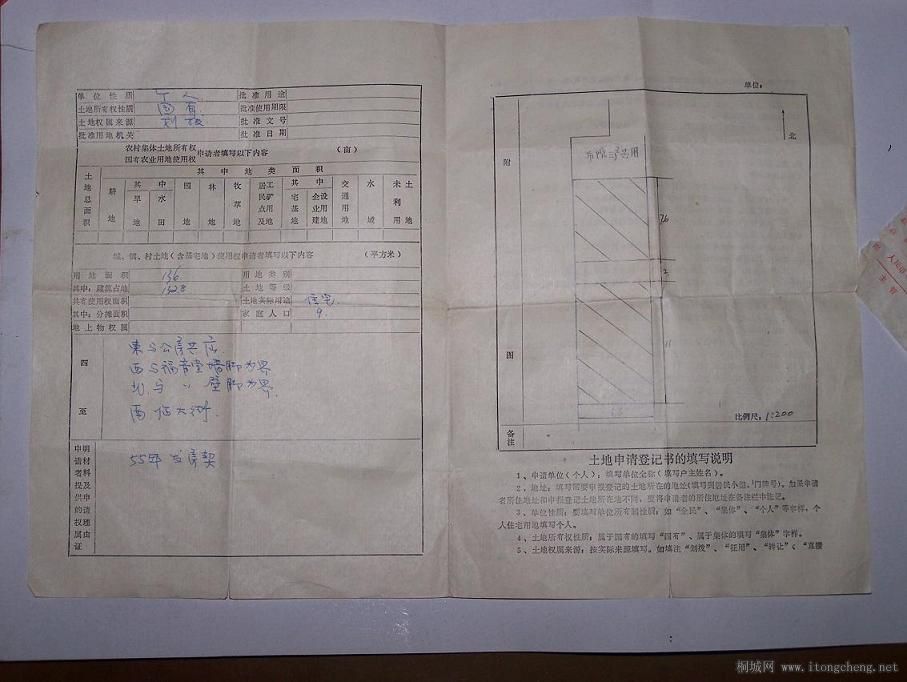 单位性质 个人 批准用途
土地所有权性质 国有 批准使用期限
土地权属来源 划拨 批准文号
批准用地机关 批准日期
农村集体土地所有权
国有农业用地使用权 申请者填写以下内容 (亩)
土地总面积 其中地类面积
耕地 其中 旱地 水田 园地 林地 牧草地 居民点及工矿用地 其中 宅基地 企业建设用地 交通用地 水域 未利用土地
城、镇、村土地(含基宅地)使用权申请者填写以下内容 (平方米)
用地面积 136 用地类别
其中:建筑占地 132.8 土地等级
共有使用权面积 土地实际用途 住宅.
其中:分摊面积 家庭人口 9.
地上物权属
四至
東与公房共
西与福音堂墙脚为界
北与 〃 壁脚为界.
南临大街.
申请者提供的权属证明材料及申请理由
55年 房契
单位:
北
附图
共用
26
11
比例尺:1:200
备注
土地申请登记书的填写说明
1、申请单位(个人):填写单位全称(填写户主姓名)。
2、地址:填写需要申报登记的土地所在的地址(填写到居民小组、门牌号)。如果申请
者所住地址和申报登记土地所在地不同,要将申请者的所住地址在备注栏中注记。
3、单位性质:要填写单位所有制性质:如“全民”、“集体”、“个人”等字样,个
人住宅用地填写个人。
4、土地所有权性质:属于国有的填写“国有”、属于集体的填写“集体”字样。
5、土地权属来源:按实际来源填写。如填注“划拨”、“征用”、“转让”、“直接
桐城网 www.itongcheng.net